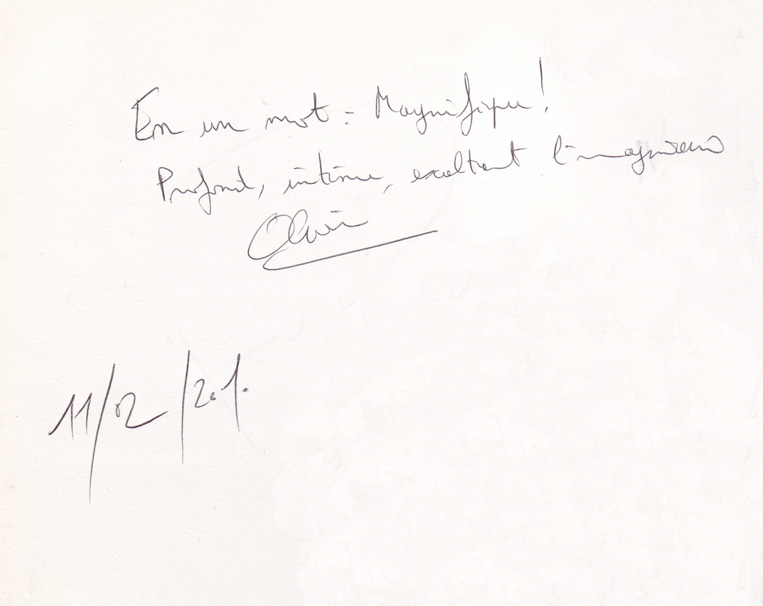 En un mot = Magnifique!
Profond, intime, exaltant l'imaginaire
Olivier
11/02/201.